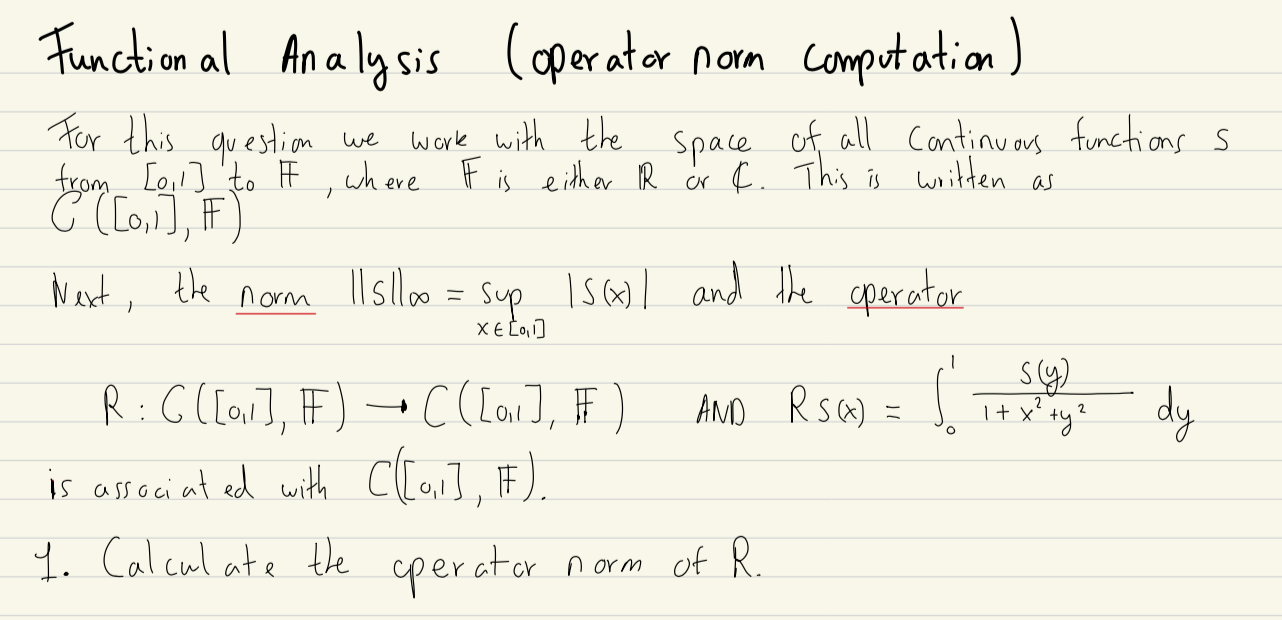 Functional Analysis (operator norm computation)
For this question we work with the space of all continuous functions s
from [0,1] to 𝔽, where 𝔽 is either ℝ or ℂ. This is written as
C([0,1], 𝔽)
Next, the norm ||s||∞ = sup |s(x)| and the operator
x∈[0,1]
R : C([0,1], 𝔽) → C([0,1], 𝔽) AND Rs(x) = ∫₀¹ s(y)/(1+x²+y²) dy
is associated with C([0,1], 𝔽).
1. Calculate the operator norm of R.